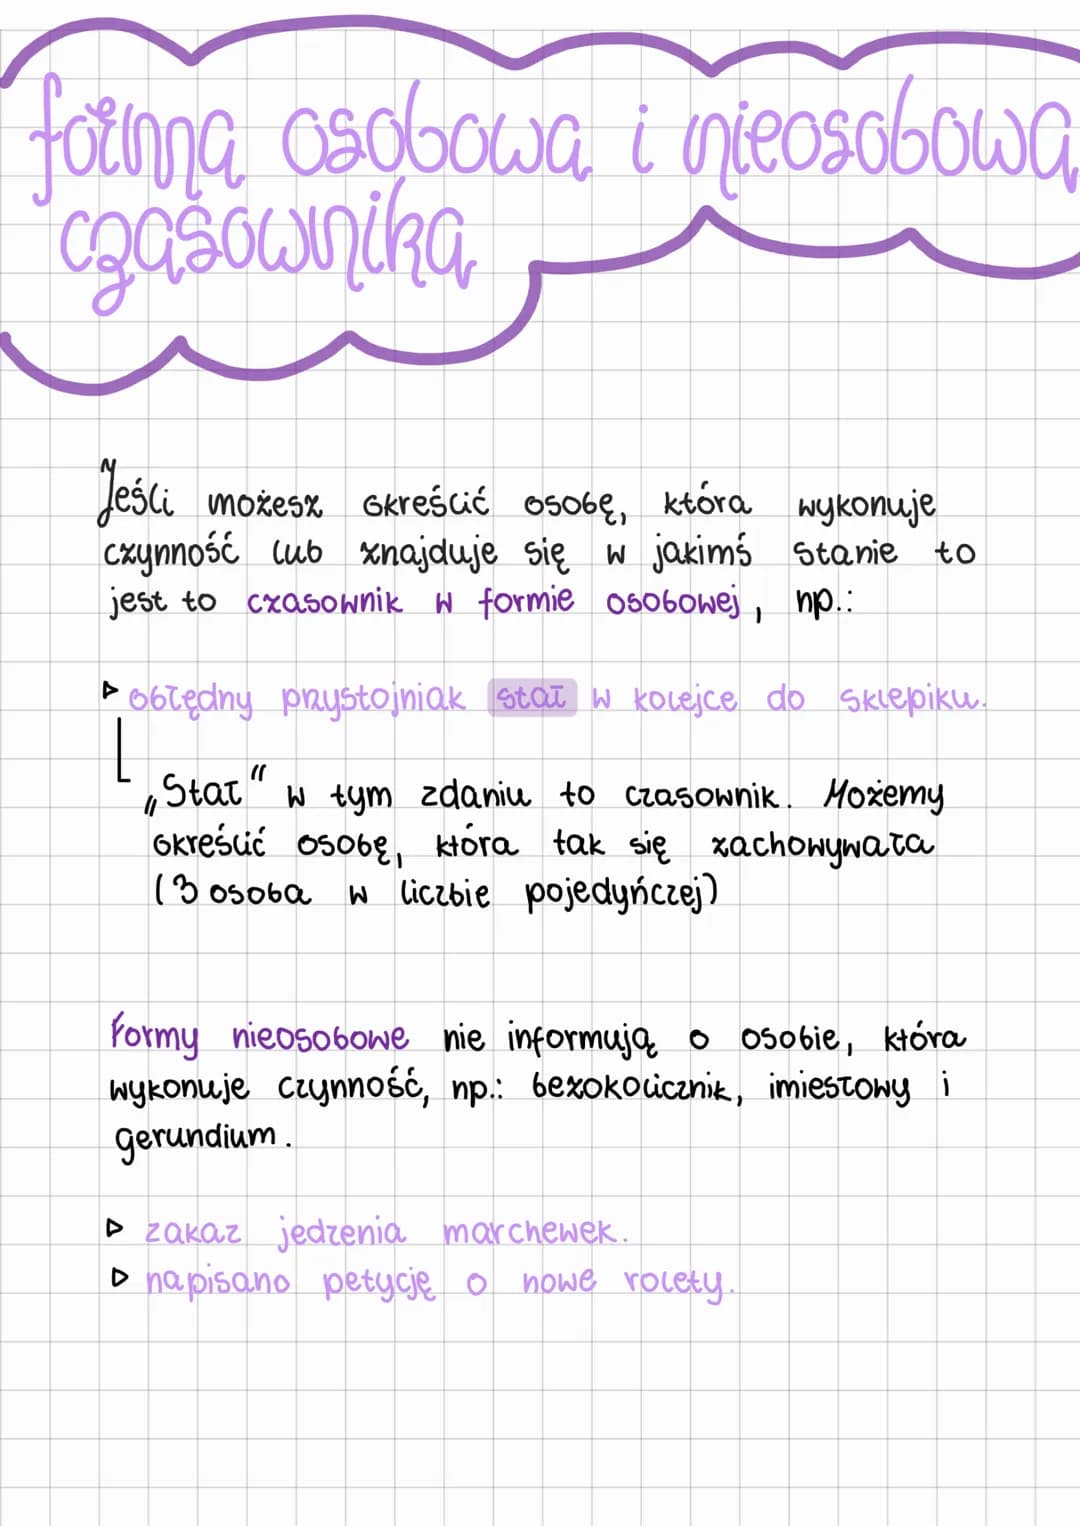 forma osobowa i nieosobowa
czasownika
Jeśli możesz określić osobę, która wykonuje
czynność lub znajduje się w jakimś stanie to
jest to czasownik w formie osobowej, np.:
▷ obłędny przystojniak stał w kolejce do sklepiku.
„Stał" w tym zdaniu to czasownik. Możemy
określić osobę, która tak się zachowywała
(3 osoba w liczbie pojedyńczej)
Formy nieosobowe nie informują o osobie, która
wykonuje czynność, np.: bezokolicznik, imiesłowy i
gerundium.
▷ zakaz jedzenia marchewek.
▷ napisano petycję o nowe rolety.